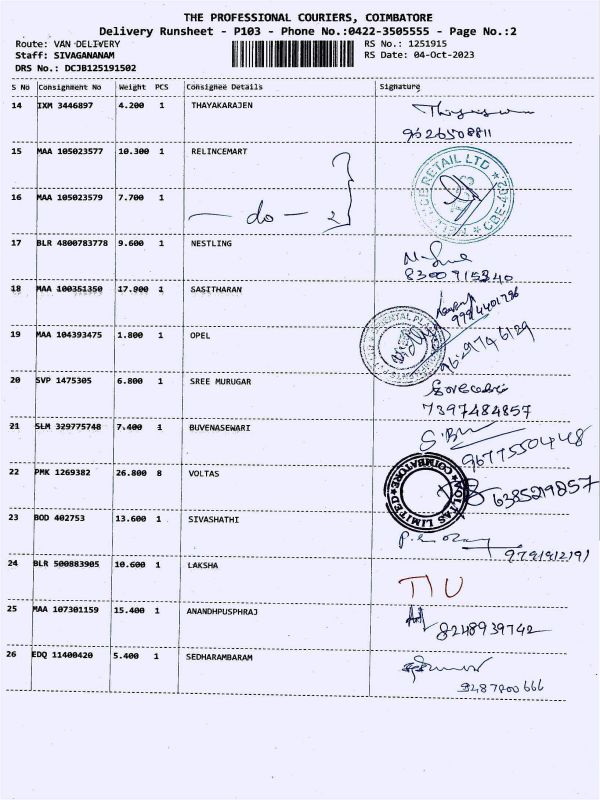 THE PROFESSIONAL COURIERS, COIMBATORE
Delivery Runsheet - P103 - Phone No.:0422-3505555 - Page No.:2
Route: VAN DELIVERY RS No.: 1251915
Staff: SIVAGANANAM RS Date: 04-Oct-2023
DRS No.: DCJB125191502
S No Consignment No Weight PCS Consignee Details Signature
14 IXM 3446897 4.200 1 THAYAKARAJEN
9626508811
15 MAA 105023577 10.300 1 RELINCEMART
RETAIL LTD
CBE-402
16 MAA 105023579 7.700 1
— do — 2
17 BLR 4800783778 9.600 1 NESTLING
8300915840
18 MAA 100351350 17.900 1 SASITHARAN
9994401796
19 MAA 104393475 1.800 1 OPEL
20 SVP 1475305 6.800 1 SREE MURUGAR
7397484857
21 SLM 329775748 7.400 1 BUVENASEWARI
S.B
9677550448
22 PMK 1269382 26.800 8 VOLTAS
VOLTAS LIMITED COIMBATORE
6385219857
23 BOD 402753 13.600 1 SIVASHATHI
24 BLR 500883905 10.600 1 LAKSHA
25 MAA 107301159 15.400 1 ANANDHPUSPHRAJ
8248939742
26 EDQ 11400420 5.400 1 SEDHARAMBARAM